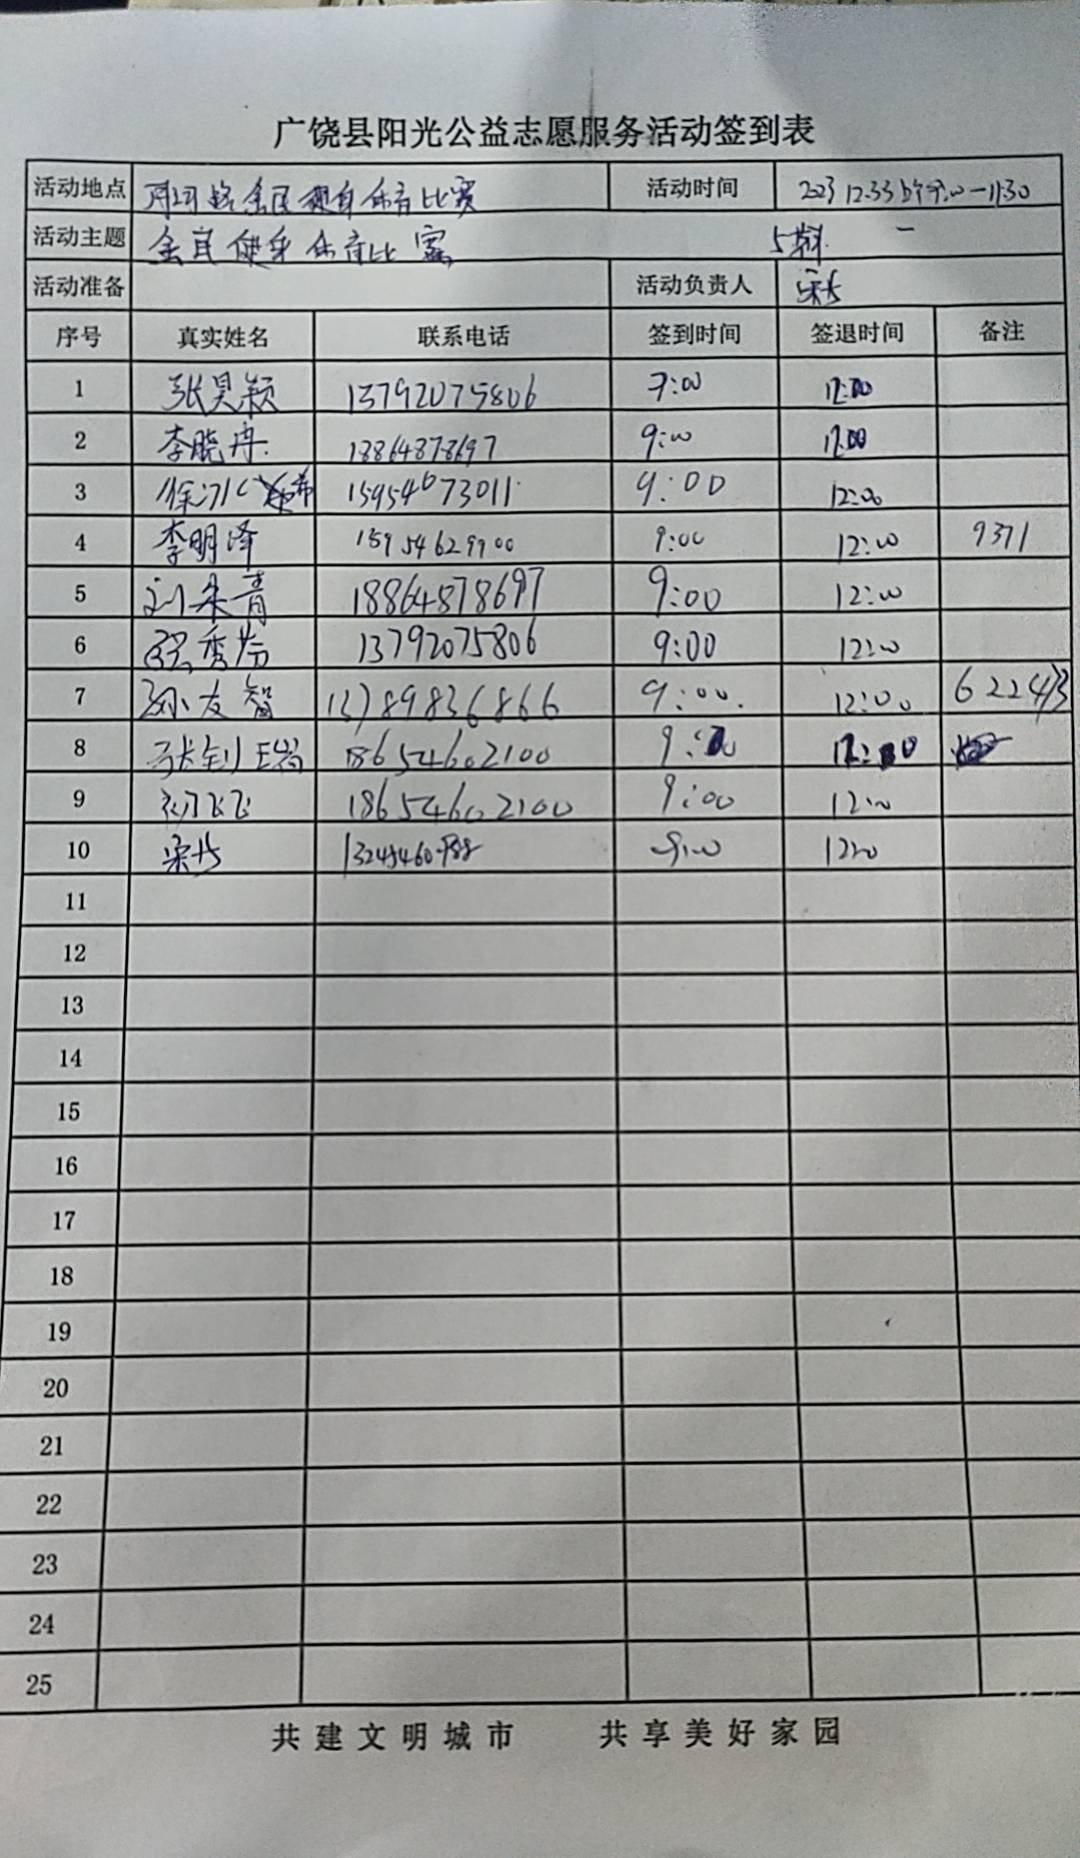 广饶县阳光公益志愿服务活动签到表
活动地点 月河路全民健身体育比赛 活动时间 2023
活动主题 全民健身体育比赛
活动准备 活动负责人
序号 真实姓名 联系电话 签到时间 签退时间 备注
1 张昊颖 13792075806 9:00 12:00
2 李晓冉 18864878697 9:00 12:00
3 15954673011 9:00 12:00
4 李明泽 15954629900 9:00 12:00 9371
5 刘朵青 18864878697 9:00 12:00
6 张秀芬 13792075806 9:00 12:00
7 孙友智 13789836866 9:00 12:00 622413
8 张钊瑞 18654602100 9:00 12:00
9 初飞飞 18654602100 9:00 12:00
10 9:00 12:00
11
12
13
14
15
16
17
18
19
20
21
22
23
24
25
共建文明城市 共享美好家园